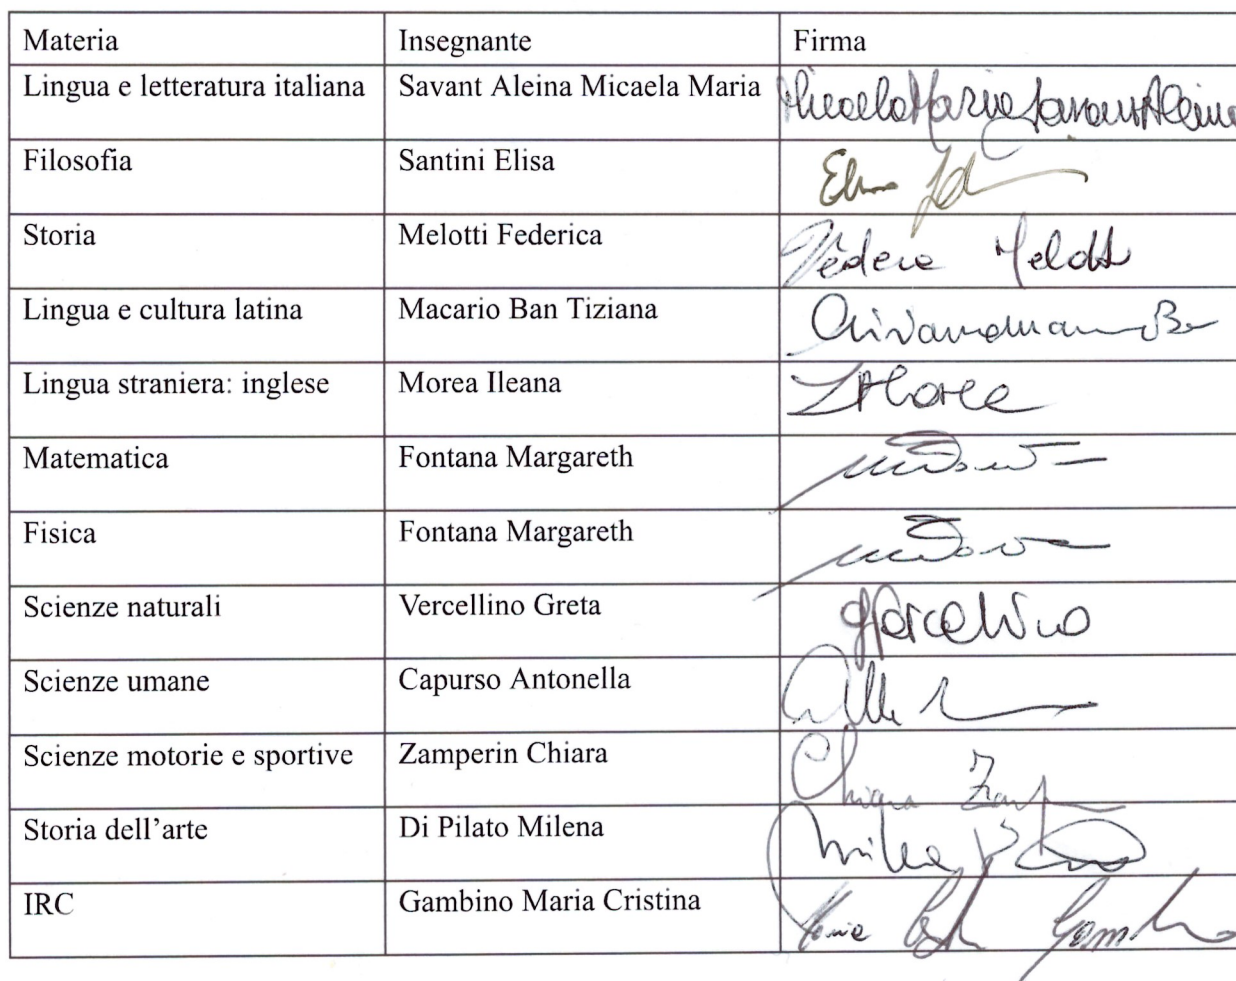 Materia Insegnante Firma
Lingua e letteratura italiana Savant Aleina Micaela Maria Micaela Maria Savant Aleina
Filosofia Santini Elisa
Storia Melotti Federica
Lingua e cultura latina Macario Ban Tiziana
Lingua straniera: inglese Morea Ileana
Matematica Fontana Margareth
Fisica Fontana Margareth
Scienze naturali Vercellino Greta
Scienze umane Capurso Antonella
Scienze motorie e sportive Zamperin Chiara Chiara
Storia dell'arte Di Pilato Milena
IRC Gambino Maria Cristina